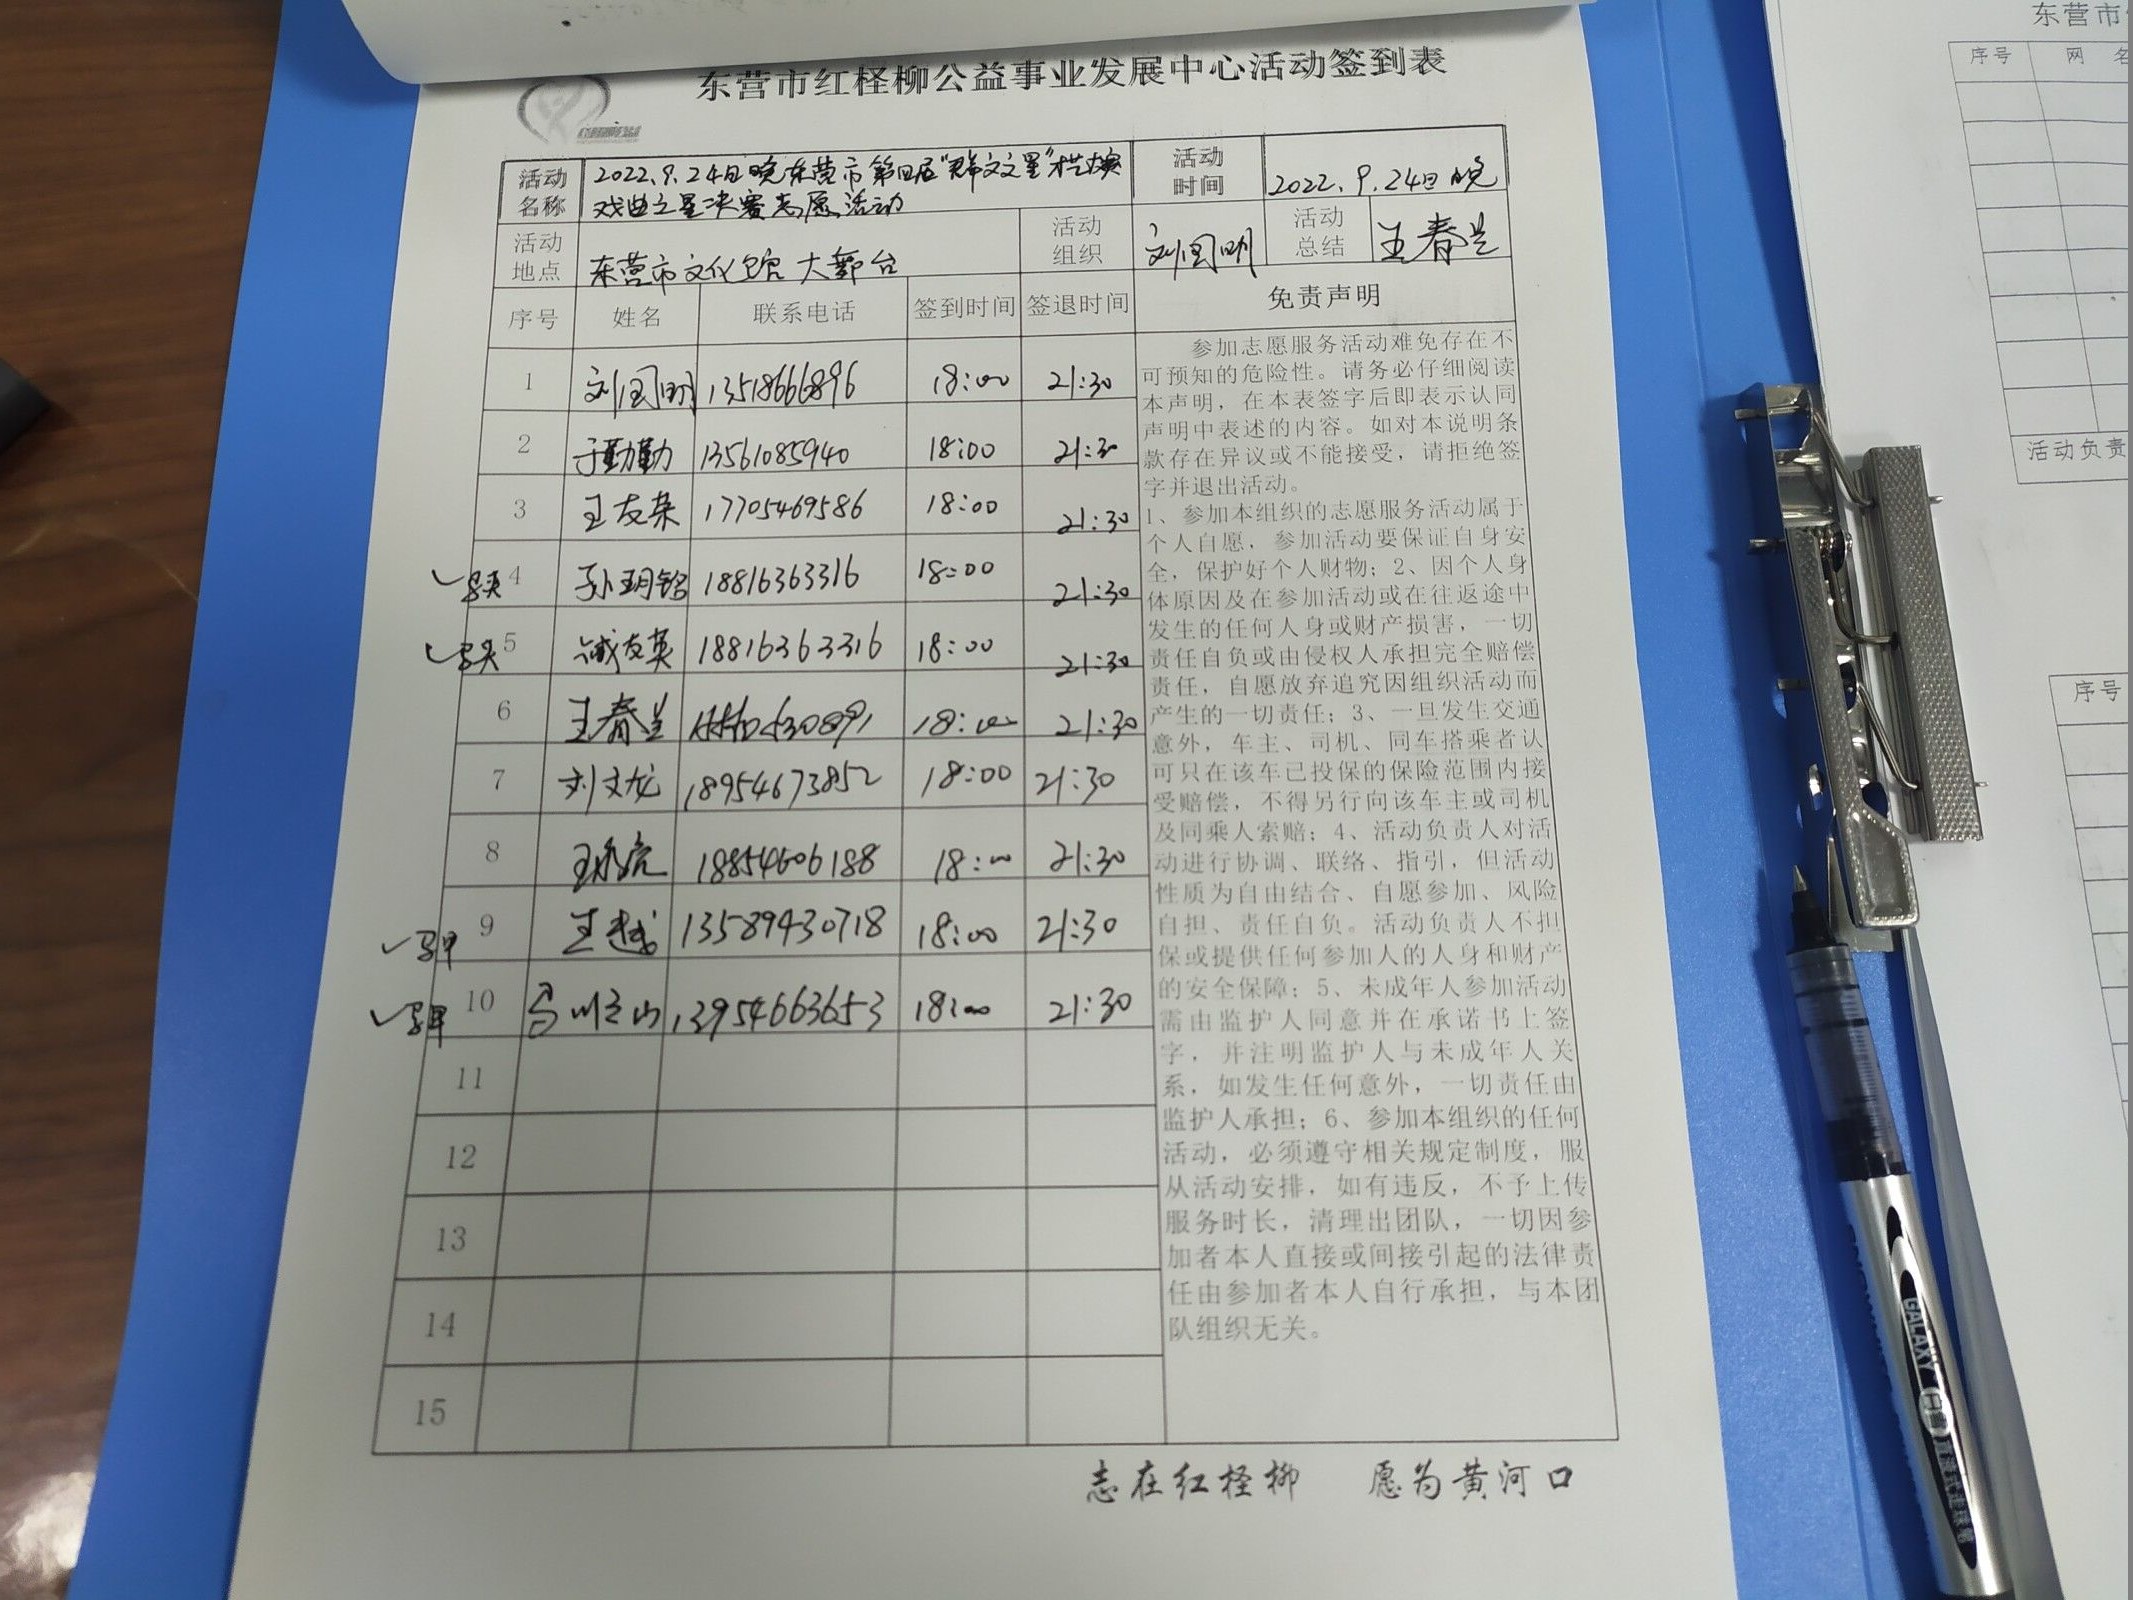 东营市红柽柳公益事业发展中心活动签到表
活动名称 2022.9.24日晚东营市第四届"群文之星"
戏曲之星决赛志愿活动
活动时间 2022.9.24日晚
活动地点 东营市文化馆 大舞台
活动组织 刘国明 活动总结 王春兰
序号 姓名 联系电话 签到时间 签退时间 免责声明
1 刘国明 13518666896 18:00 21:30
2 于勤勤 13561085940 18:00 21:30
3 王友荣 17705469586 18:00 21:30
4 孙玥铭 18816363316 18:00 21:30
5 臧友英 18816363316 18:00 21:30
6 王春兰 18:00 21:30
7 刘文龙 18954673852 18:00 21:30
8 18854606188 18:00 21:30
9 王越 13589430718 18:00 21:30
10 13954663653 18:00 21:30
11
12
13
14
15
参加志愿服务活动难免存在不
可预知的危险性。请务必仔细阅读
本声明，在本表签字后即表示认同
声明中表述的内容。如对本说明条
款存在异议或不能接受，请拒绝签
字并退出活动。
1、参加本组织的志愿服务活动属于
个人自愿，参加活动要保证自身安
全，保护好个人财物；2、因个人身
体原因及在参加活动或在往返途中
发生的任何人身或财产损害，一切
责任自负或由侵权人承担完全赔偿
责任，自愿放弃追究因组织活动而
产生的一切责任；3、一旦发生交通
意外，车主、司机、同车搭乘者认
可只在该车已投保的保险范围内接
受赔偿，不得另行向该车主或司机
及同乘人索赔；4、活动负责人对活
动进行协调、联络、指引，但活动
性质为自由结合、自愿参加、风险
自担、责任自负。活动负责人不担
保或提供任何参加人的人身和财产
的安全保障；5、未成年人参加活动
需由监护人同意并在承诺书上签
字，并注明监护人与未成年人关
系，如发生任何意外，一切责任由
监护人承担；6、参加本组织的任何
活动，必须遵守相关规定制度，服
从活动安排，如有违反，不予上传
服务时长，清理出团队，一切因参
加者本人直接或间接引起的法律责
任由参加者本人自行承担，与本团
队组织无关。
志在红柽柳 愿为黄河口
东营市
序号 网 名
活动负责
序号
GALAXY